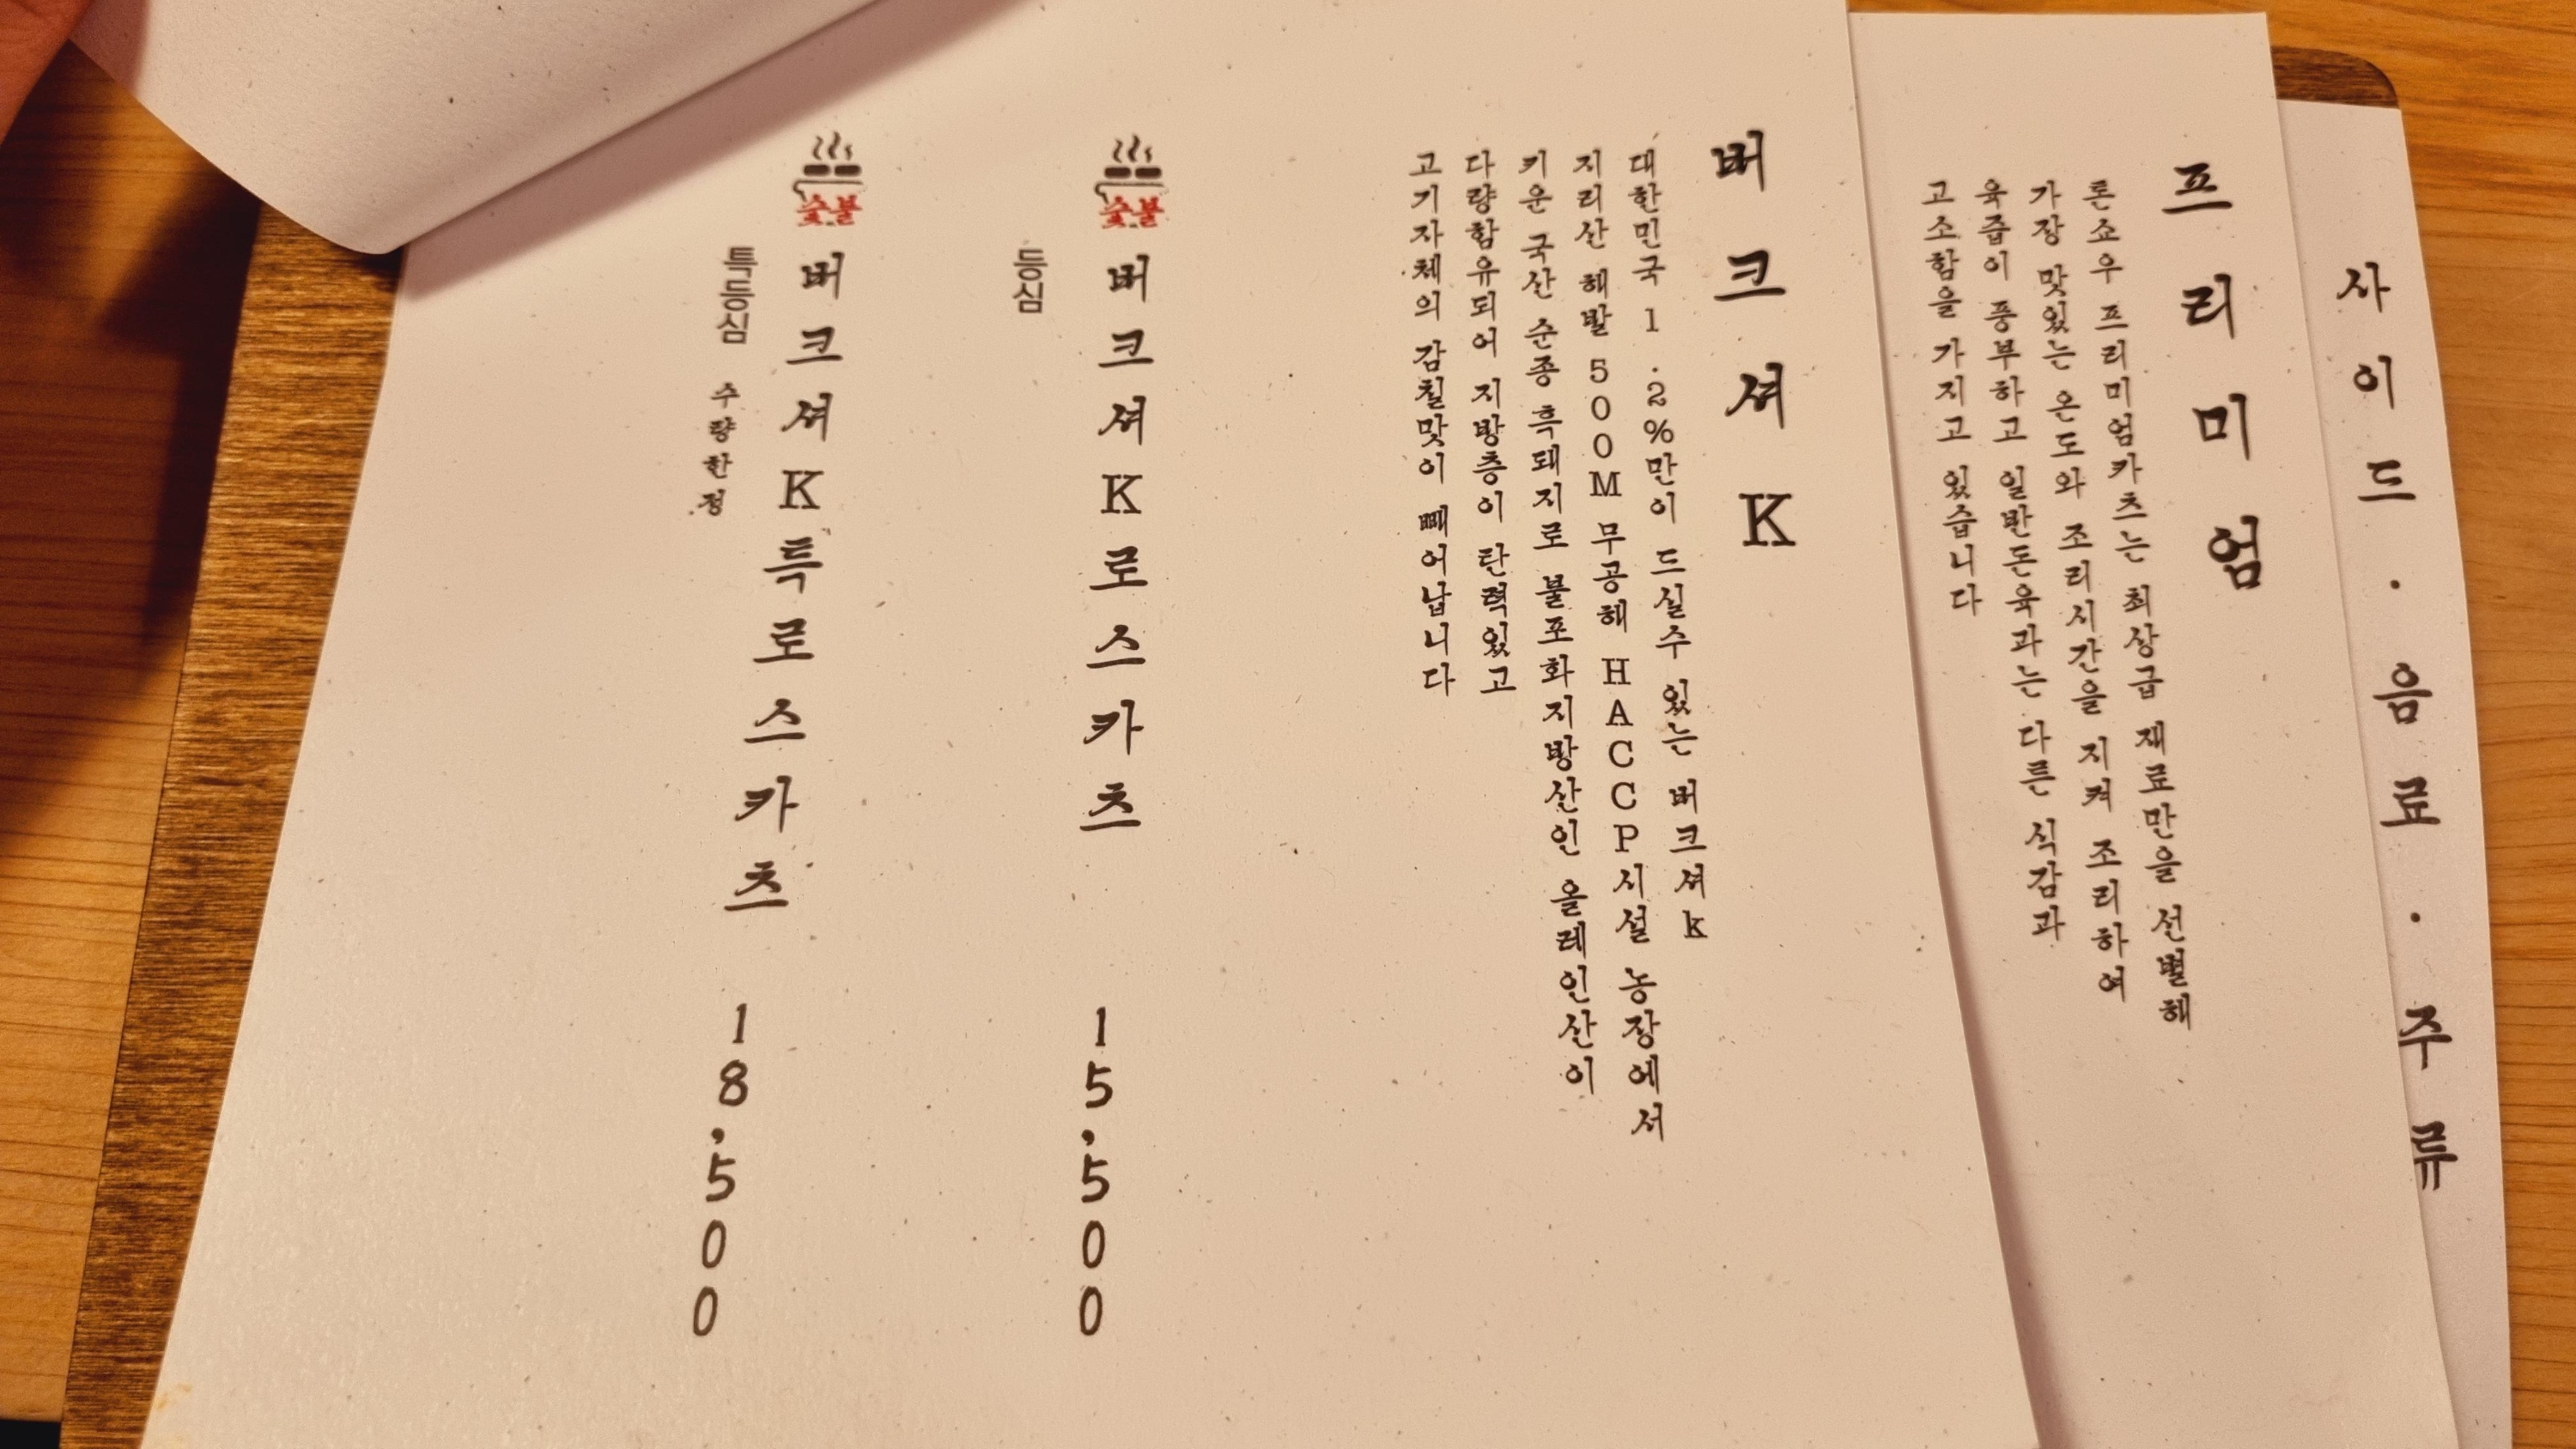 사이드 · 음료 · 주류
프리미엄
론쇼우 프리미엄카츠는 최상급 재료만을 선별해
가장 맛있는 온도와 조리시간을 지켜 조리하여
육즙이 풍부하고 일반돈육과는 다른 식감과
고소함을 가지고 있습니다
버크셔K
대한민국 1.2%만이 드실수 있는 버크셔k
지리산 해발 500M 무공해 HACCP시설 농장에서
키운 국산 순종 흑돼지로 불포화지방산인 올레인산이
다량함유되어 지방층이 탄력있고
고기자체의 감칠맛이 빼어납니다
숯불
버크셔K로스카츠 15,500
등심
숯불
버크셔K특로스카츠 18,500
특등심 수량한정